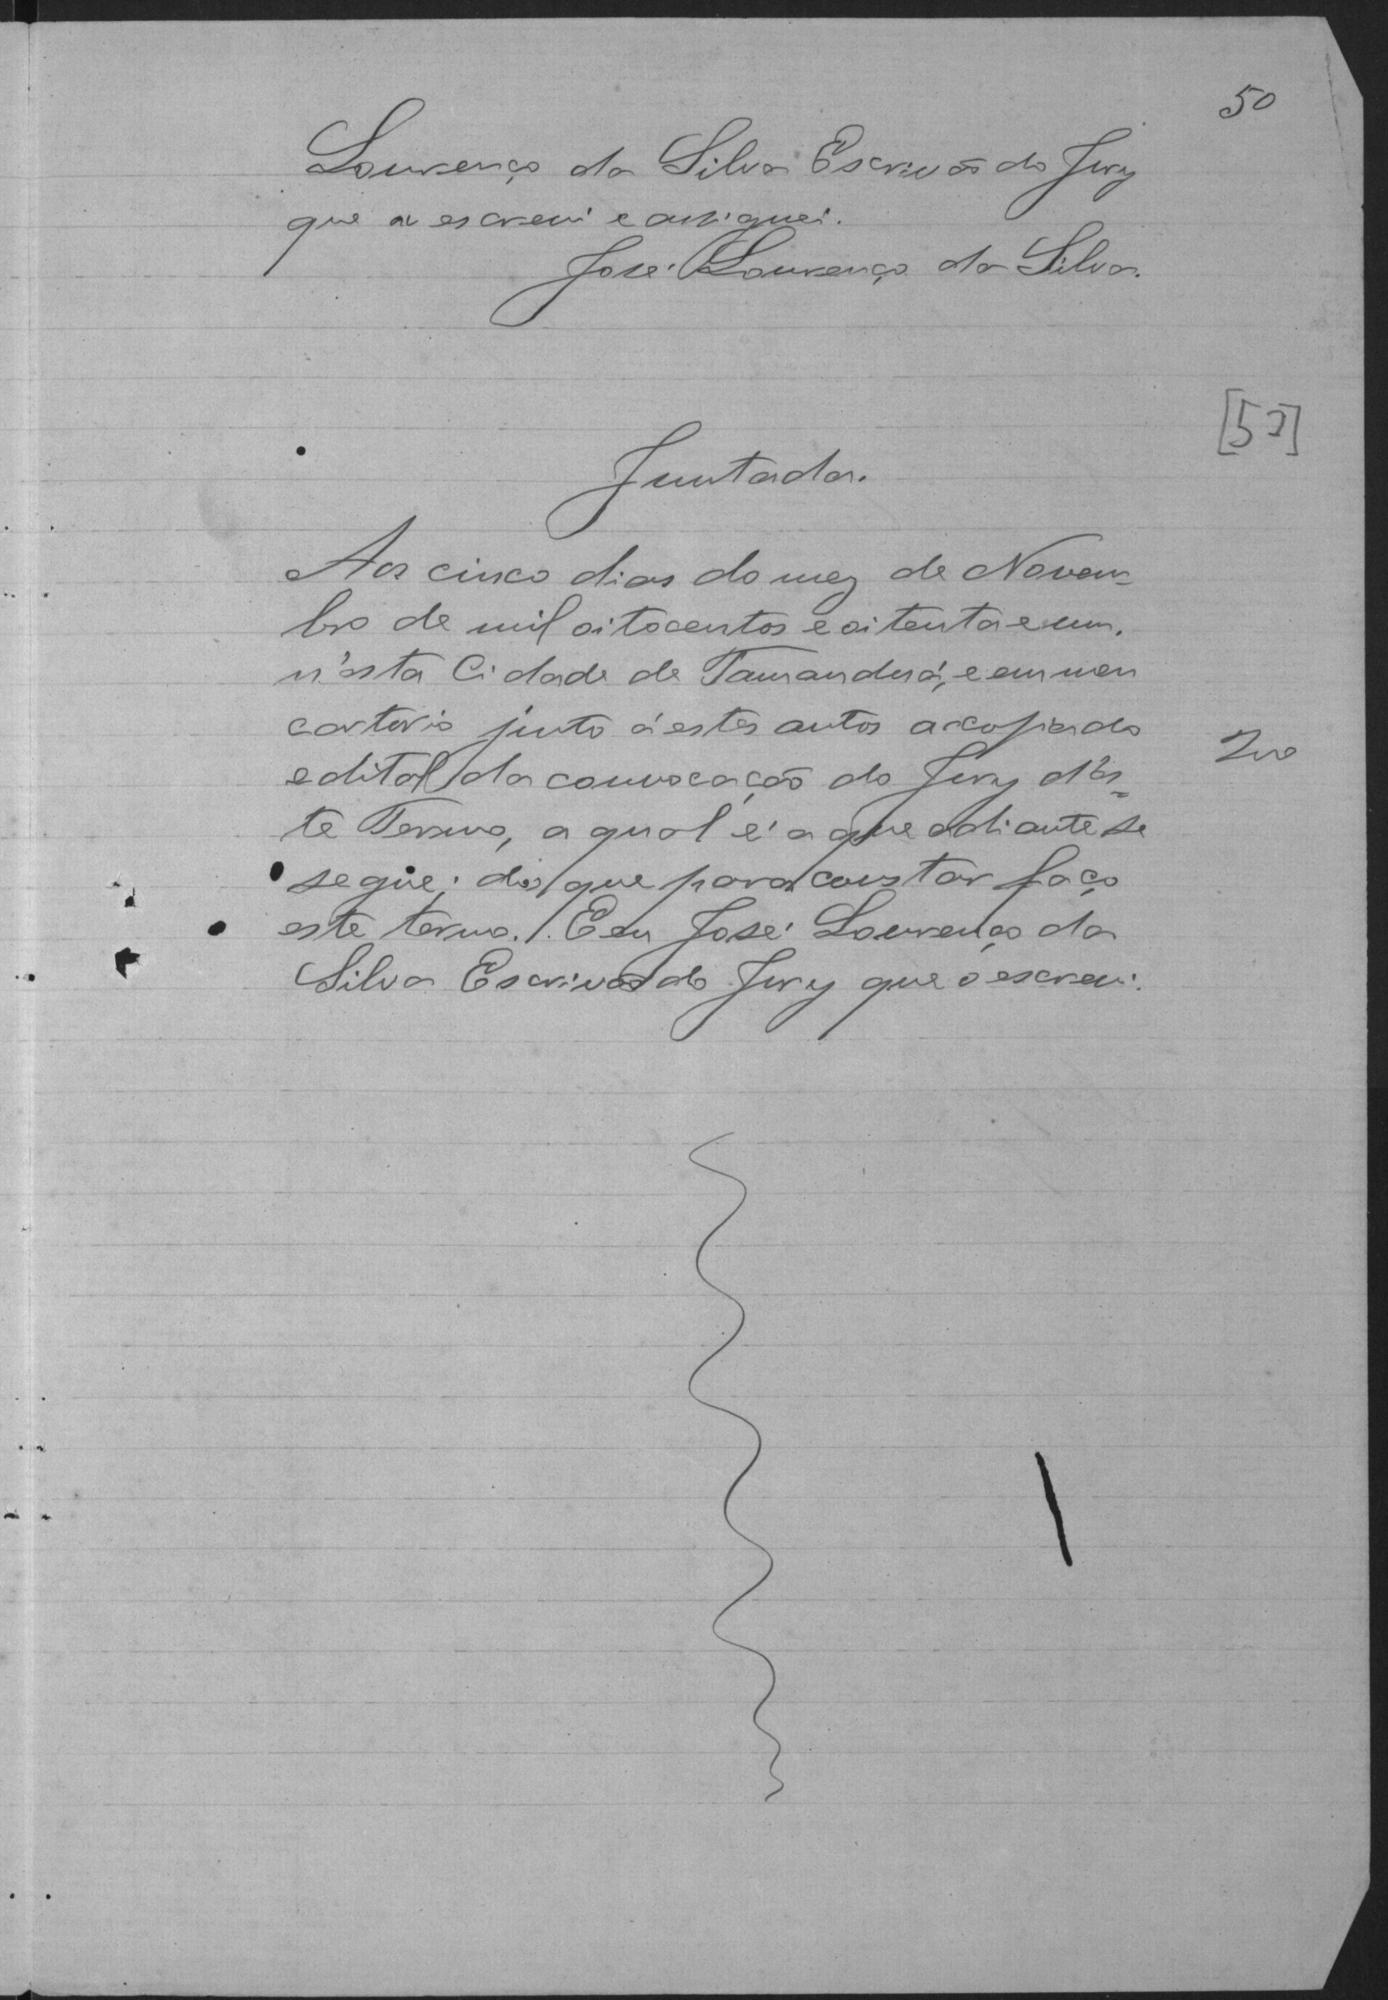 50
Lourenço da Silva Escrivão do Jury
que a escrevi e assignei.
José Lourenço da Silva.
Juntada.
Aos cinco dias do mez de Novem=
bro de mil oitocentos e oitenta e um,
n'ésta Cidade de Tamanduá, e em meu
cartorio junto á estes autos a copia do
edital da convocação do Jury d'és=
te Termo, a qual é a que adiante se
segue; do que para constar faço
este termo. Eu José Lourenço da
Silva Escrivão do Jury que o escrevi.